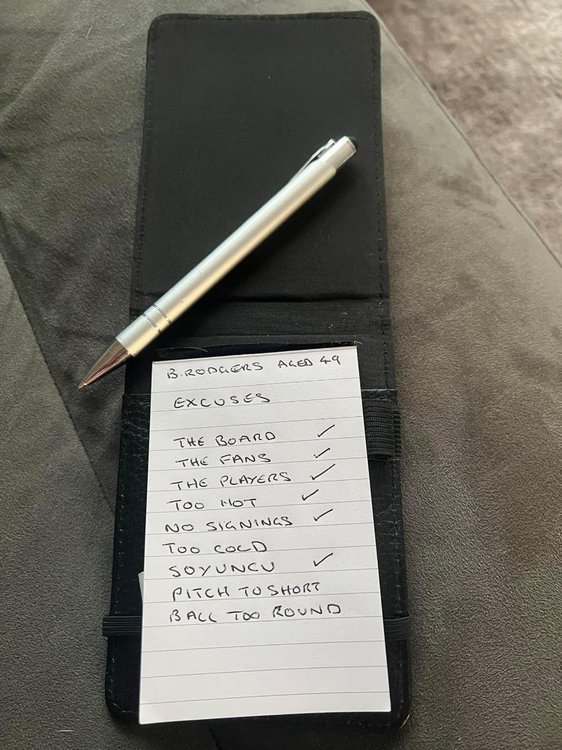 B. RODGERS AGED 49
EXCUSES
THE BOARD ✓
THE FANS ✓
THE PLAYERS ✓
TOO HOT ✓
NO SIGNINGS ✓
TOO COLD
SOYUNCU ✓
PITCH TO SHORT
BALL TOO ROUND